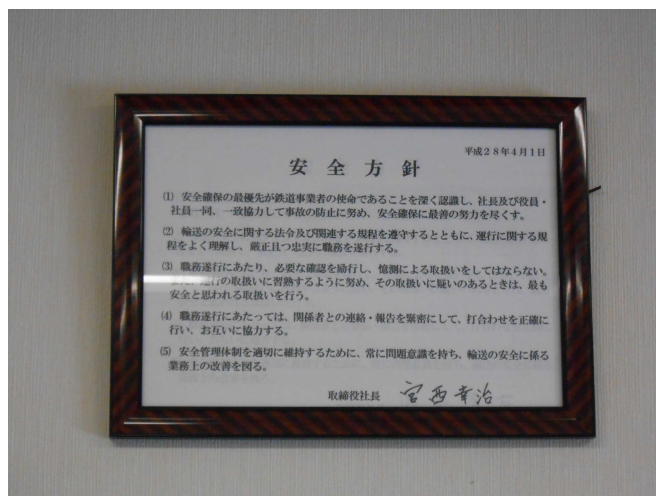 平成28年4月1日
安全方針
(1) 安全確保の最優先が鉄道事業者の使命であることを深く認識し、社長及び役員・
社員一同、一致協力して事故の防止に努め、安全確保に最善の努力を尽くす。
(2) 輸送の安全に関する法令及び関連する規程を遵守するとともに、運行に関する規
程をよく理解し、厳正且つ忠実に職務を遂行する。
(3) 職務遂行にあたり、必要な確認を励行し、憶測による取扱いをしてはならない。
運行の取扱いに習熟するように努め、その取扱いに疑いのあるときは、最も
安全と思われる取扱いを行う。
(4) 職務遂行にあたっては、関係者との連絡・報告を緊密にして、打合わせを正確に
行い、お互いに協力する。
(5) 安全管理体制を適切に維持するために、常に問題意識を持ち、輸送の安全に係る
業務上の改善を図る。
取締役社長 宮西幸治